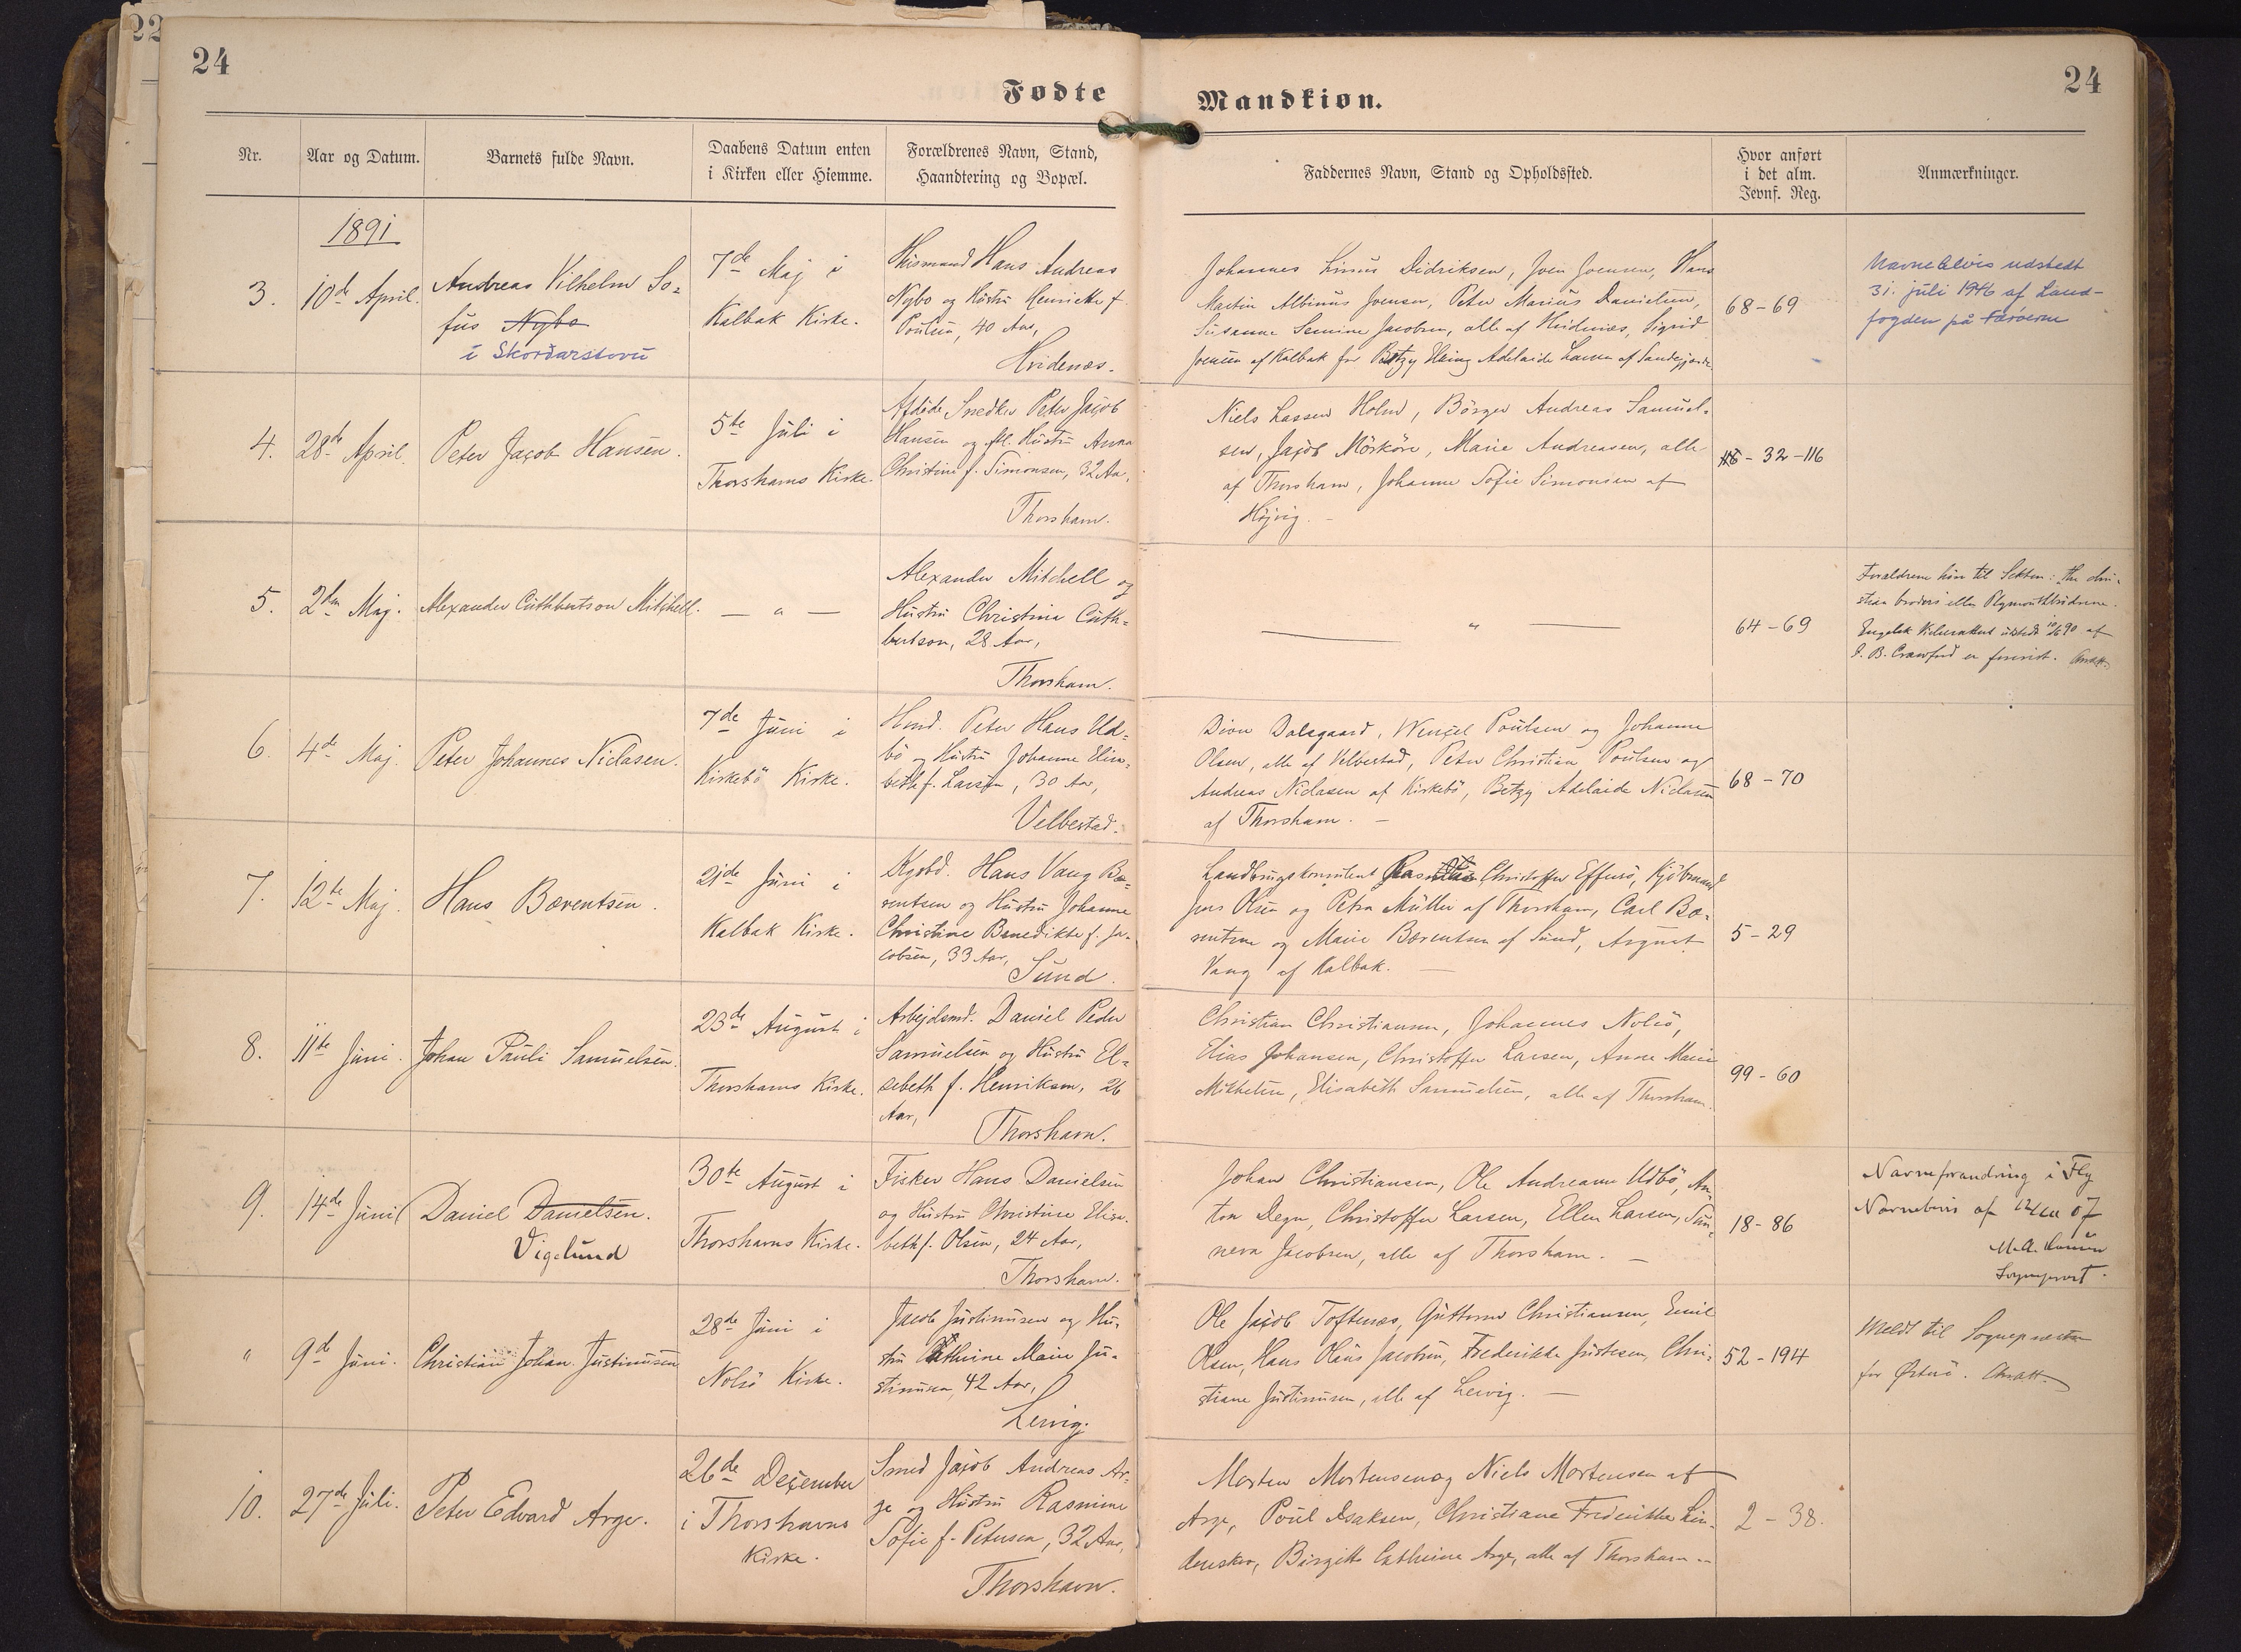 22
24
24
Fødte
Mandkiøn.
Nr.
Aar og Datum.
Barnets fulde Navn.
Daabens Datum enten
i Kirken eller Hiemme.
Forældrenes Navn, Stand,
Haandtering og Bopæl.
Faddernes Navn, Stand og Opholdssted.
Hvor anført
i det alm.
Jevnf. Reg.
Anmærkninger.
1891
3.
10de April.
Andreas Vilhelm So=
fus Nybo
í Skorðarstovu
7de Maj i
Kalbak Kirke.
Husmand Hans Andreas
Nybo og Hustru Henriette f.
Poulsen, 40 Aar,
Hvidenæs.
Johannes Linus Didriksen, Joen Joensen, Hans
Martin Albinus Joensen, Peter Marius Danielsen,
Susanne Semine Jacobsen, alle af Hvidenæs, Sigrid
Joensen af Kalbak for Betzy Elring Adelaide Larsen af Sandegjærde
68-69
Navnebevis udstedt
31. juli 1946 af Land-
fogden på Færøerne
4.
28de April.
Peter Jacob Hansen.
5te Juli i
Thorshavns Kirke.
Afdøde Snedker Peter Jacob
Hansen og Hustru Anna
Christine f. Simonsen, 32 Aar,
Thorshavn.
Niels Lassen Holm, Börger Andreas Samuel=
sen, Jacob Mörköre, Marie Andreasen, alle
af Thorshavn, Johanne Sofie Simonsen af
Højvig.
- 32 - 116
5.
2den Maj.
Alexander Cuthbertson Mitchell.
— " —
Alexander Mitchell og
Hustru Christina Cuth=
bertson, 28 Aar,
Thorshavn.
— " —
64-69
Forældrene høre til Sekten: the chri=
stian broders eller Plymouthbrødrene.
Engelsk Vielsesattest udstedt 10/6 90 af
J. B. Crawford er forevist.
6.
4de Maj.
Peter Johannes Niclasen.
7de Juni i
Kirkebö Kirke.
Hmd. Peter Hans Ud=
bö og Hustru Johanne Elisa=
beth f. Larsen, 30 Aar,
Velbestad.
Dion Dalsgaard, Wenzel Poulsen og Johanne
Olsen, alle af Velbestad, Peter Christian Poulsen og
Andreas Niclasen af Kirkebö, Betzy Adelaide Niclasen
af Thorshavn.
68-70
7.
12te Maj.
Hans Bærentsen.
21de Juni i
Kalbak Kirke.
Kgsbd. Hans Vang Bæ=
rentsen og Hustru Johanne
Christine Benedikte f. Ja=
cobsen, 33 Aar,
Sund.
Landbrugskonsulent Christoffer Effersö, Kjöbmand
Jens Olsen og Petra Müller af Thorshavn, Carl Bæ=
rentsen og Marie Bærentsen af Sund, August
Vang af Kalbak.
5-29
8.
11te Juni.
Johan Pauli Samuelsen.
23de August i
Thorshavns Kirke.
Arbejdsmd. Daniel Peder
Samuelsen og Hustru El=
sebeth f. Henriksen, 26
Aar,
Thorshavn.
Christian Christiansen, Johannes Nolsö,
Elias Johansen, Christoffer Larsen, Anne Marie
Mikkelsen, Elisabeth Samuelsen, alle af Thorshavn.
99-60
9.
14de Juni
Daniel Danielsen.
Vigelund
30te August i
Thorshavns Kirke.
Fisker Hans Danielsen
og Hustru Christine Elisa=
beth f. Olsen, 24 Aar,
Thorshavn.
Johan Christiansen, Ole Andreasen Udbö, An=
ton Degn, Christoffer Larsen, Ellen Larsen, Sun=
neva Jacobsen, alle af Thorshavn.
18-86
Navneforandring i Flg
Navnebevis af 07
Sognepræst.
"
9de Juni.
Christian Johan Justinussen
28de Juni i
Nolsö Kirke.
Jacob Justinussen og Hu=
stru Cathrine Marie Ju=
stinussen, 42 Aar,
Lervig.
Ole Jacob Toftenæs, Guttorm Christiansen, Emil
Olsen, Hans Olaus Jacobsen, Frederikke Justesen, Chri=
stiane Justinussen, alle af Lervig.
52-194
Meldt til Sognepræsten
for Østerö.
10.
27de Juli.
Peter Edvard Arge.
26de December
i Thorshavns
Kirke.
Smed Jacob Andreas Ar=
ge og Hustru Rasmine
Sofie f. Petersen, 32 Aar,
Thorshavn.
Morten Mortensen og Niels Mortensen af
Arge, Poul Isaksen, Christiane Frederikke Lin=
denskov, Birgitte Cathrine Arge, alle af Thorshavn.
2-38.